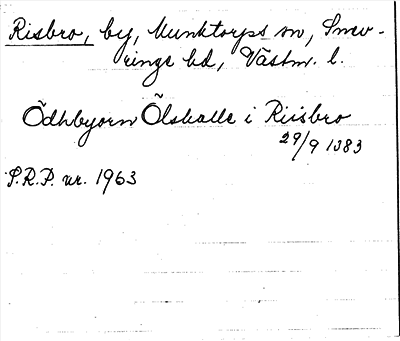 Risbro, by, Munktorps sn, Snev-
ringe hd, Västm. l.
Ödhbyorn Ölskalle i Riisbro
29/9 1383
S.R.P. nr. 1963